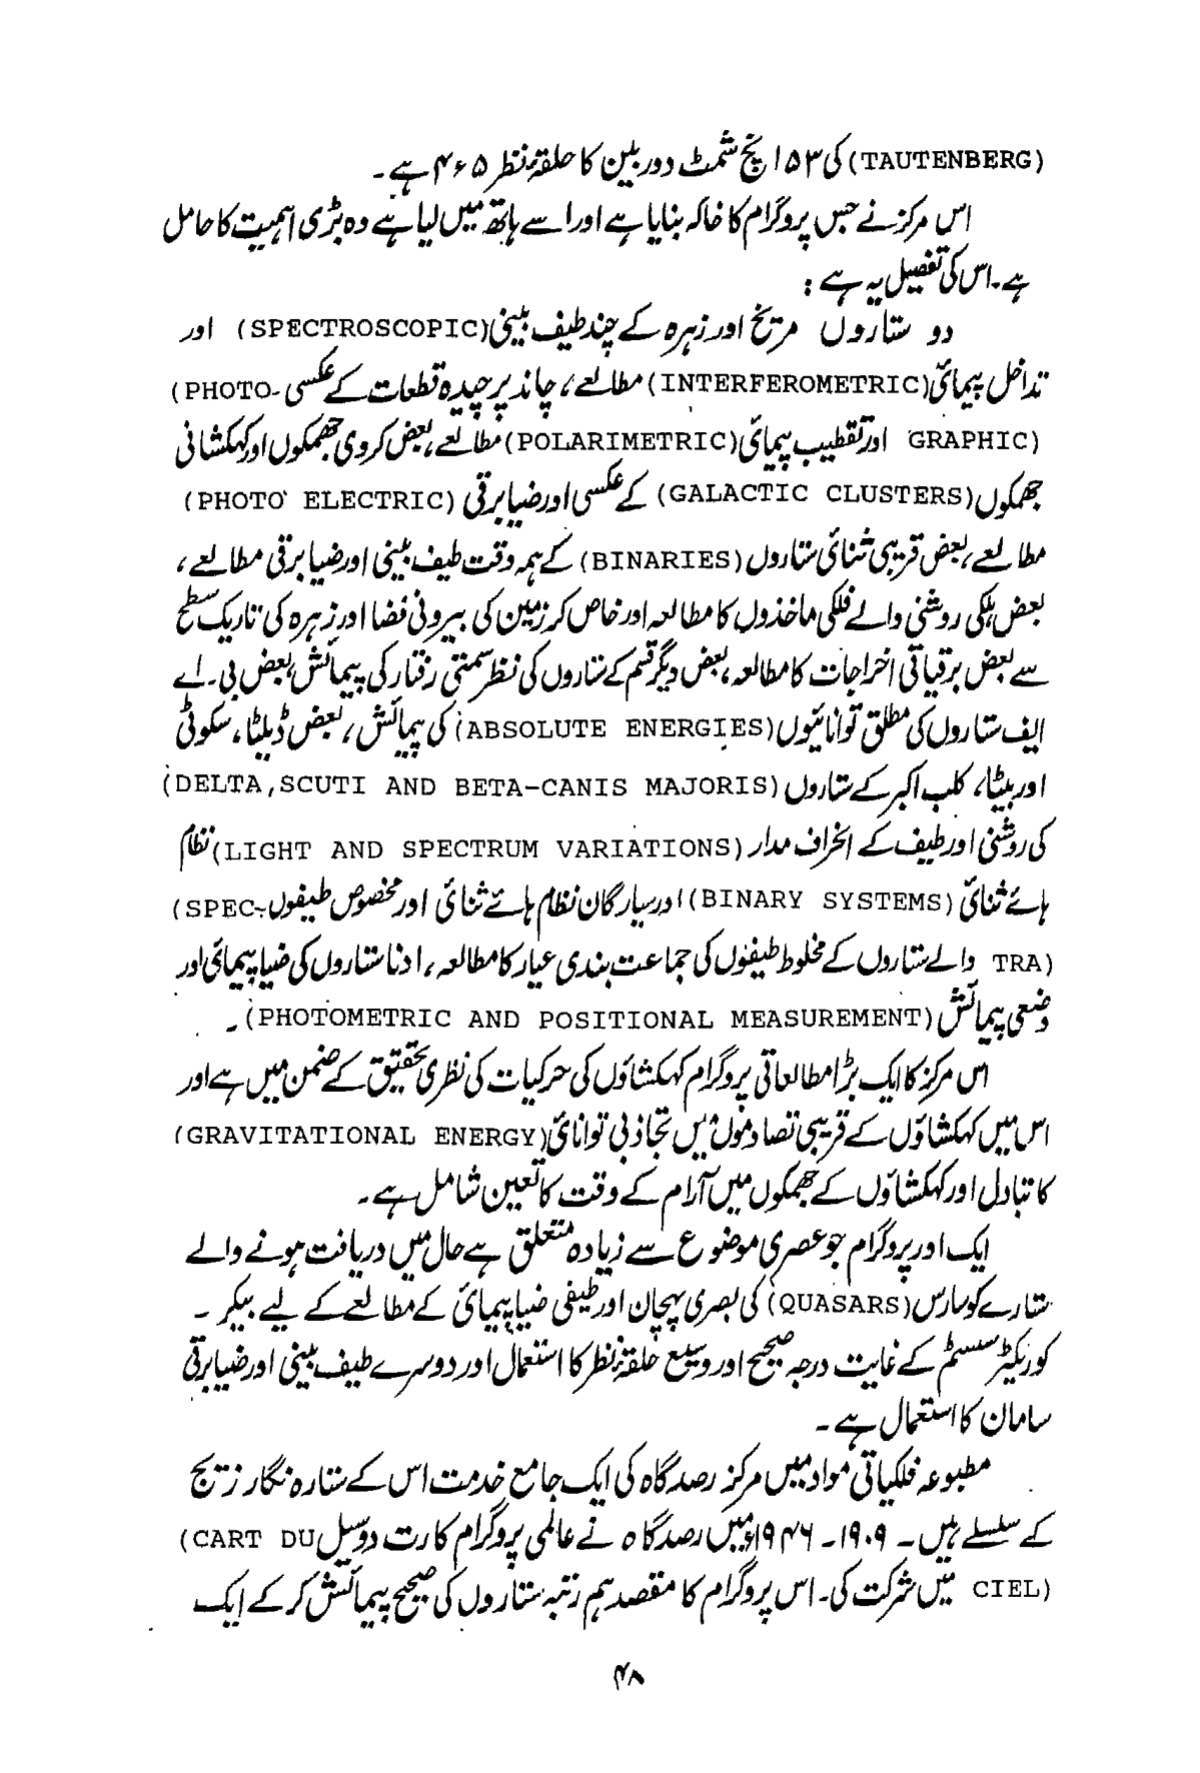 (TAUTENBERG) کی ۵۳ا پنچ شمٹ دوربین کا حلقۂ نظر ۴۶۵ ہے۔
اس مرکز نے جس پروگرام کا خاکہ بنایا ہے اور اسے ہاتھ میں لیا ہے وہ بڑی اہمیت کا حامل
ہے۔ اس کی تفصیل یہ ہے :
دو ستاروں مریخ اور زہرہ کے چند طیف بینی (SPECTROSCOPIC) اور
تداخل پیمائی (INTERFEROMETRIC) مطالعے، چاند پر چیدہ قطعات کے عکسی (PHOTO-
GRAPHIC) اور تقطیب پیمائی (POLARIMETRIC) مطالعے، بعض کروی جھمکوں اور کہکشانی
جھمکوں (GALACTIC CLUSTERS) کے عکسی اور ضیا برقی (PHOTO ELECTRIC)
مطالعے، بعض قریبی ثنائی ستاروں (BINARIES) کے ہمہ وقت طیف بینی اور ضیا برقی مطالعے،
بعض ہلکی روشنی والے فلکی ماخذوں کا مطالعہ اور خاص کر زمین کی بیرونی فضا اور زہرہ کی تاریک سطح
سے بعض برقیاتی اخراجات کا مطالعہ، بعض دیگر قسم کے ستاروں کی نظر سمتی رفتار کی پیمائش، بعض بی۔ اے
ایف ستاروں کی مطلق توانائیوں (ABSOLUTE ENERGIES) کی پیمائش، بعض ڈیلٹا، سکوٹی
اور بیٹا، کلب اکبر کے ستاروں (DELTA,SCUTI AND BETA-CANIS MAJORIS)
کی روشنی اور طیف کے انحراف مدار (LIGHT AND SPECTRUM VARIATIONS) نظام
ہائے ثنائی (BINARY SYSTEMS) اور سیارگان نظام ہائے ثنائی اور مخصوص طیفوں (SPEC-
TRA) والے ستاروں کے مخلوط طیفوں کی جماعت بندی عیار کا مطالعہ، ادنا ستاروں کی ضیا پیمائی اور
وضعی پیمائش (PHOTOMETRIC AND POSITIONAL MEASUREMENT)۔
اس مرکز کا ایک بڑا مطالعاتی پروگرام کہکشاؤں کی حرکیات کی نظری تحقیق کے ضمن میں ہے اور
اس میں کہکشاؤں کے قریبی تصادموں میں تجاذبی توانائی (GRAVITATIONAL ENERGY)
کا تبادل اور کہکشاؤں کے جھمکوں میں آرام کے وقت کا تعین شامل ہے۔
ایک اور پروگرام جو عصری موضوع سے زیادہ متعلق ہے حال میں دریافت ہونے والے
ستارے کوسارس (QUASARS) کی بصری پہچان اور طیفی ضیا پیمائی کے مطالعے کے لیے بیکر۔
کوریکٹر سسٹم کے غایت درجہ صحیح اور وسیع حلقۂ نظر کا استعمال اور دوسرے طیف بینی اور ضیا برقی
سامان کا استعمال ہے۔
مطبوعہ فلکیاتی مواد میں مرکز رصد گاہ کی ایک جامع خدمت اس کے ستارہ نگار زیج
کے سلسلے ہیں۔ ۱۹۰۹۔ ۱۹۴۶ء میں رصد گاہ نے عالمی پروگرام کارت دوسیل (CART DU
CIEL) میں شرکت کی۔ اس پروگرام کا مقصد ہم رتبہ ستاروں کی صحیح پیمائش کر کے ایک
۴۸